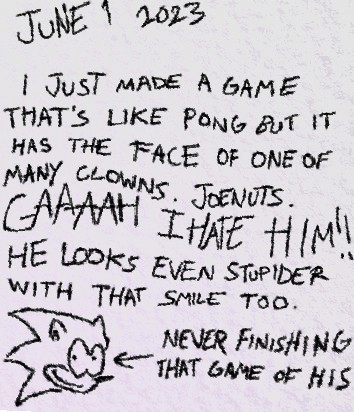 JUNE 1 2023
I JUST MADE A GAME
THAT'S LIKE PONG BUT IT
HAS THE FACE OF ONE OF
MANY CLOWNS. JOENUTS.
GAAAAH I HATE HIM!!
HE LOOKS EVEN STUPIDER
WITH THAT SMILE TOO.
NEVER FINISHING
THAT GAME OF HIS